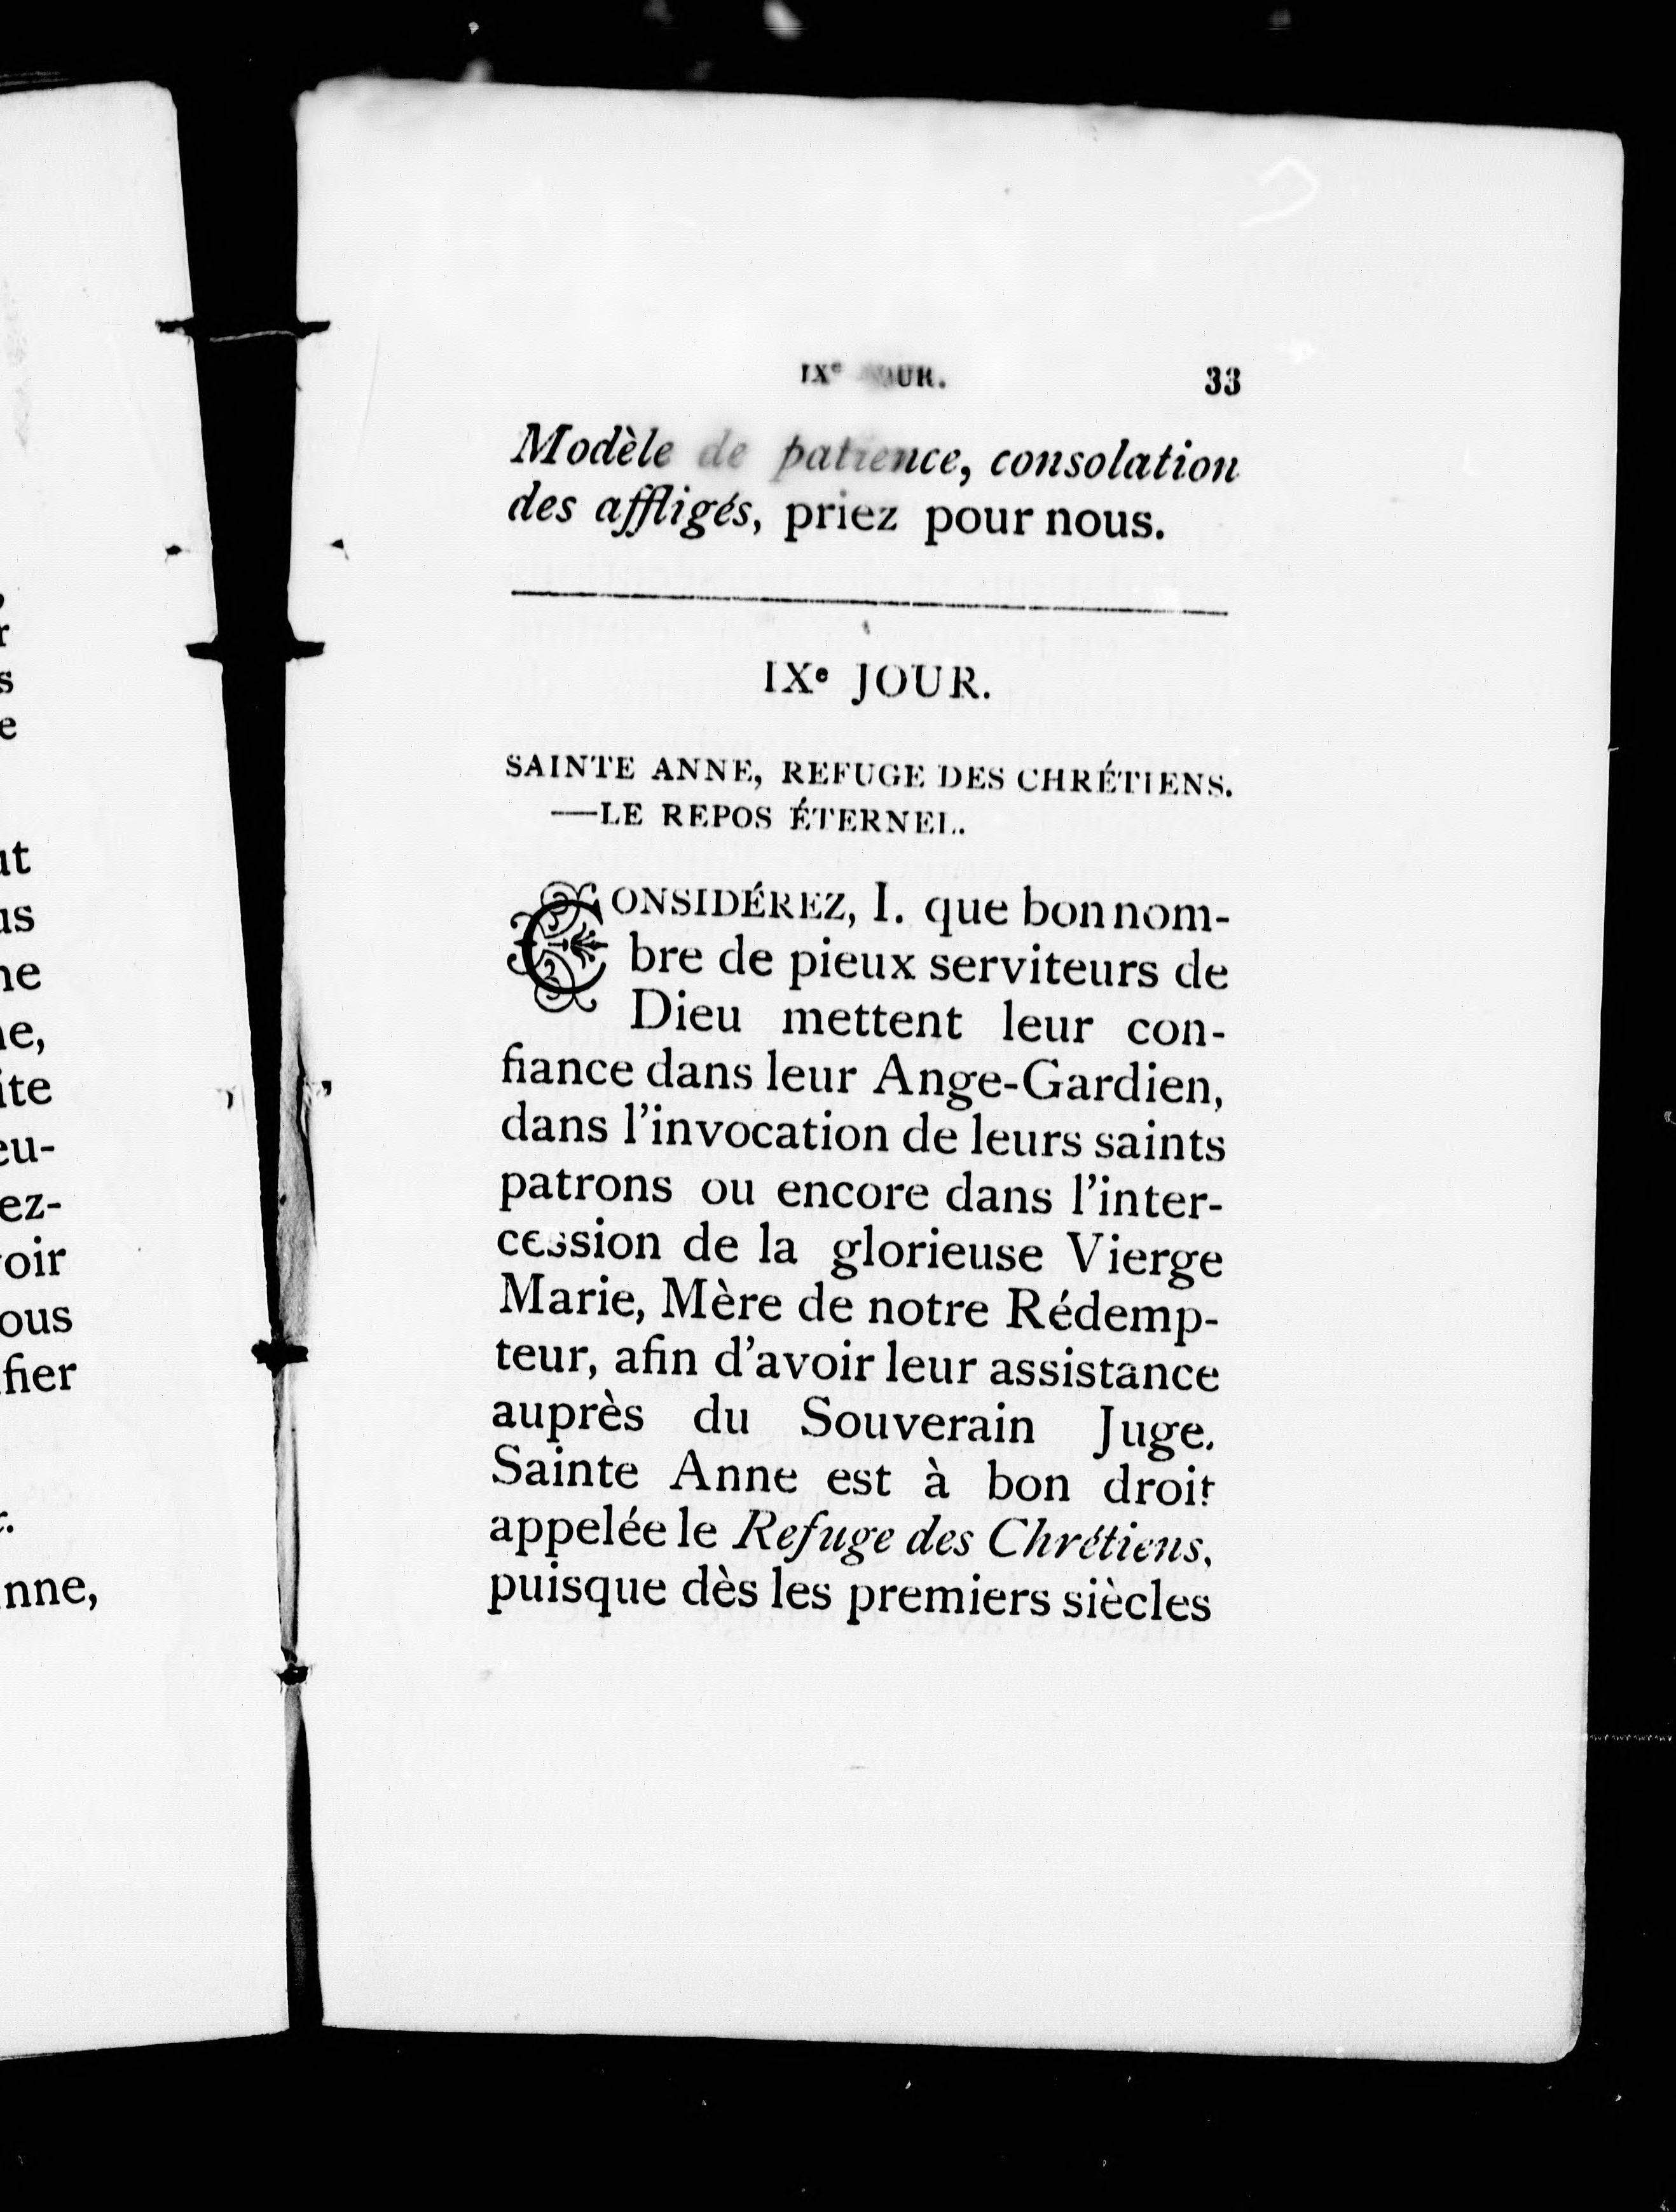 IXe JOUR. 33
Modèle de patience, consolation
des affligés, priez pour nous.
IXe JOUR.
SAINTE ANNE, REFUGE DES CHRÉTIENS.
—LE REPOS ÉTERNEL.
CONSIDÉREZ, I. que bon nom-
bre de pieux serviteurs de
Dieu mettent leur con-
fiance dans leur Ange-Gardien,
dans l'invocation de leurs saints
patrons ou encore dans l'inter-
cession de la glorieuse Vierge
Marie, Mère de notre Rédemp-
teur, afin d'avoir leur assistance
auprès du Souverain Juge.
Sainte Anne est à bon droit
appelée le Refuge des Chrétiens,
puisque dès les premiers siècles